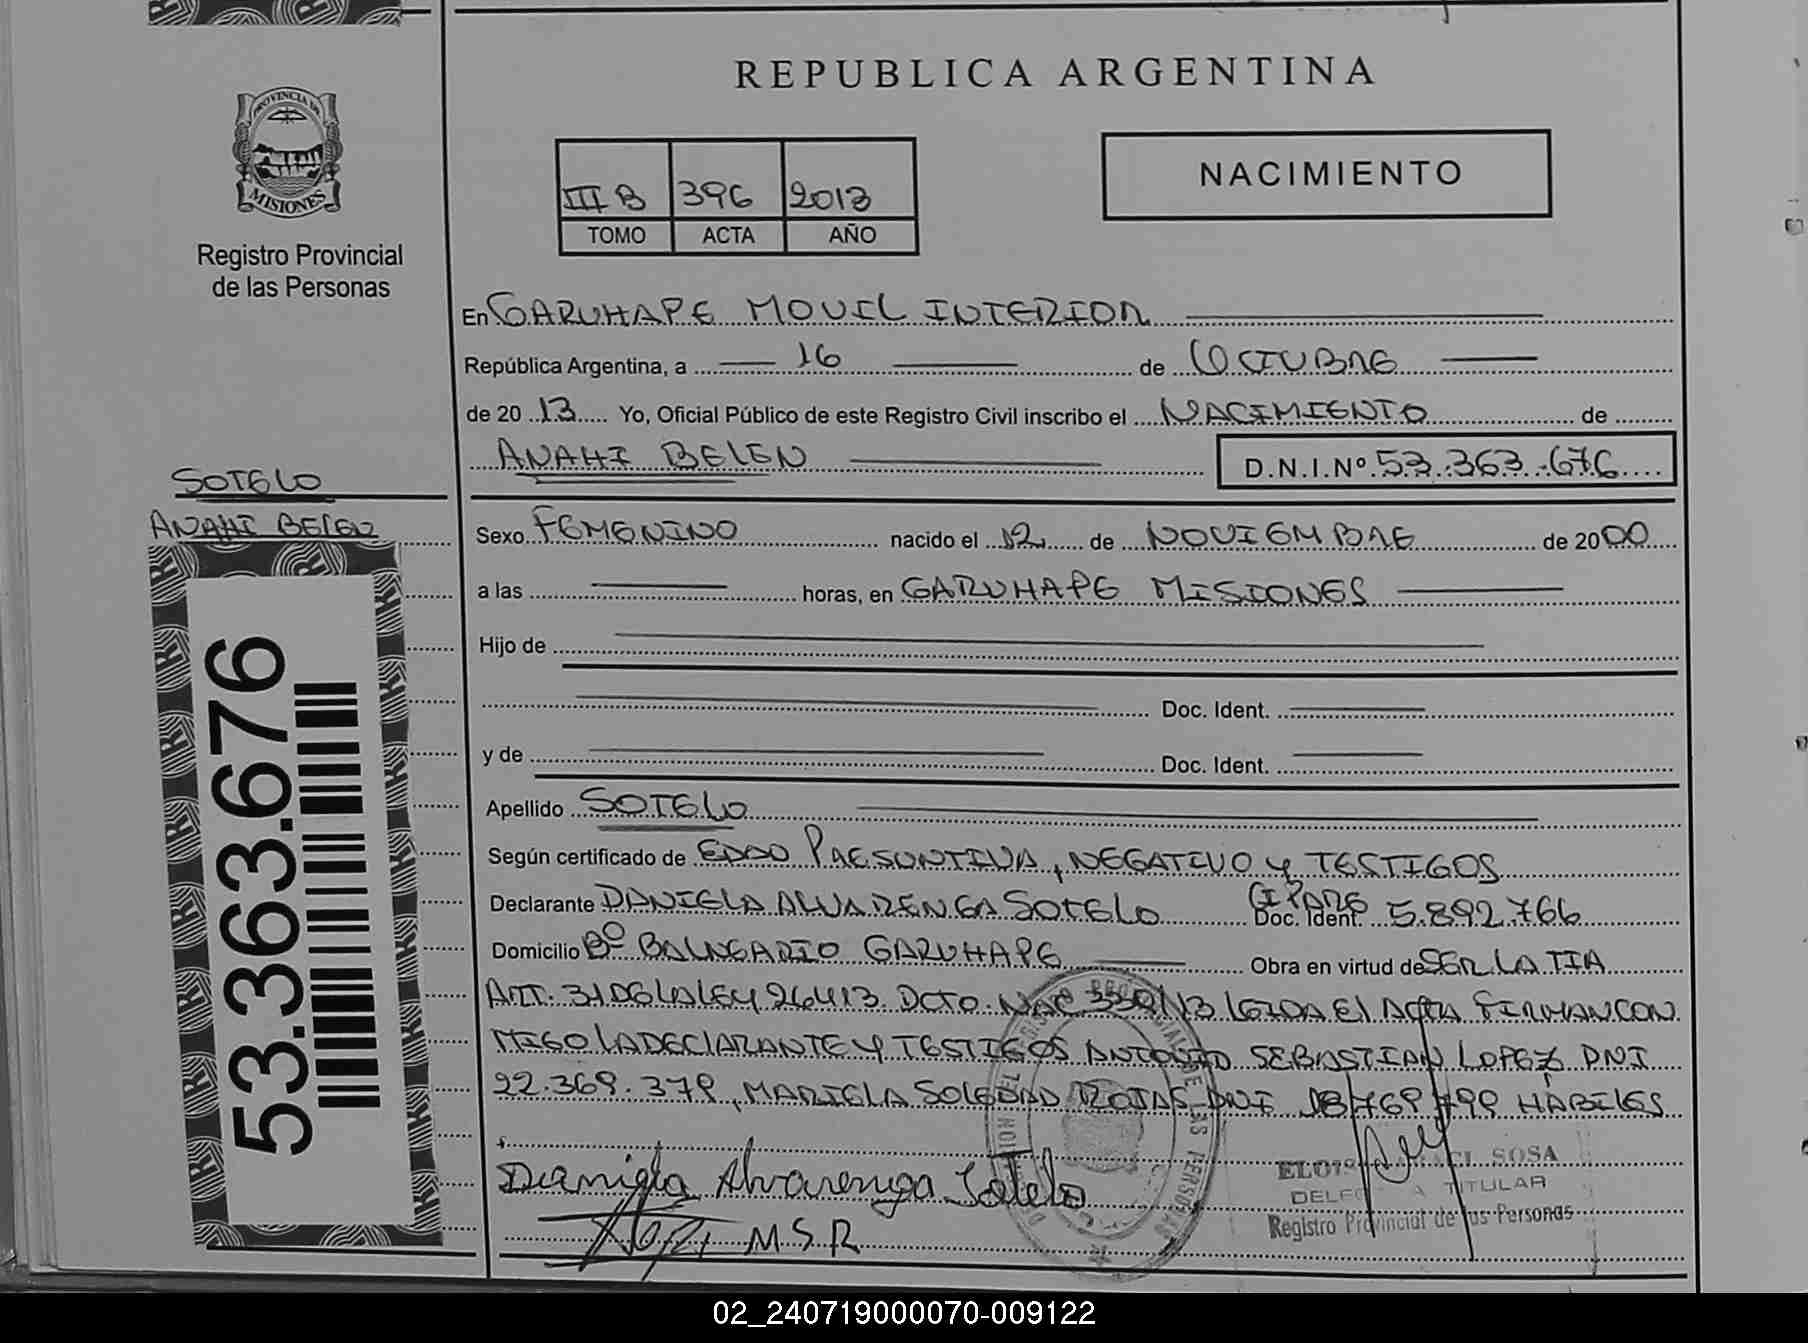 REPUBLICA ARGENTINA
PROVINCIA DE
MISIONES
Registro Provincial
de las Personas
III B 396 2013
TOMO ACTA AÑO
NACIMIENTO
En GARUHAPE MOVIL INTERIOR
República Argentina, a 16 de OCTUBRE
de 20 13 Yo, Oficial Público de este Registro Civil inscribo el NACIMIENTO de
ANAHI BELEN D.N.I.Nº 53.363.676
SOTELO
ANAHI BELEN
53.363.676
Sexo FEMENINO nacido el 12 de NOVIEMBRE de 20 00
a las horas, en GARUHAPE MISIONES
Hijo de
Doc. Ident.
y de Doc. Ident.
Apellido SOTELO
Según certificado de EDAD PRESUNTIVA, NEGATIVO y TESTIGOS
Declarante DANIELA ALVARENGA SOTELO Doc. Ident. CI PARG 5.892.766
Domicilio Bº BALNEARIO GARUHAPE Obra en virtud de SER LA TIA
ART. 31 DE LA LEY 26413. DCTO. NAC 339/13 LEIDA EL ACTA FIRMAN CON
MIGO LA DECLARANTE Y TESTIGOS ANTONIO SEBASTIAN LOPEZ DNI
22.369.378, MARIELA SOLEDAD ROJAS DNI 18 769 799 HABILES
Daniela Alvarenga Sotelo
M.S.R
SOSA
TITULAR
Registro Provincial de las Personas
02_240719000070-009122